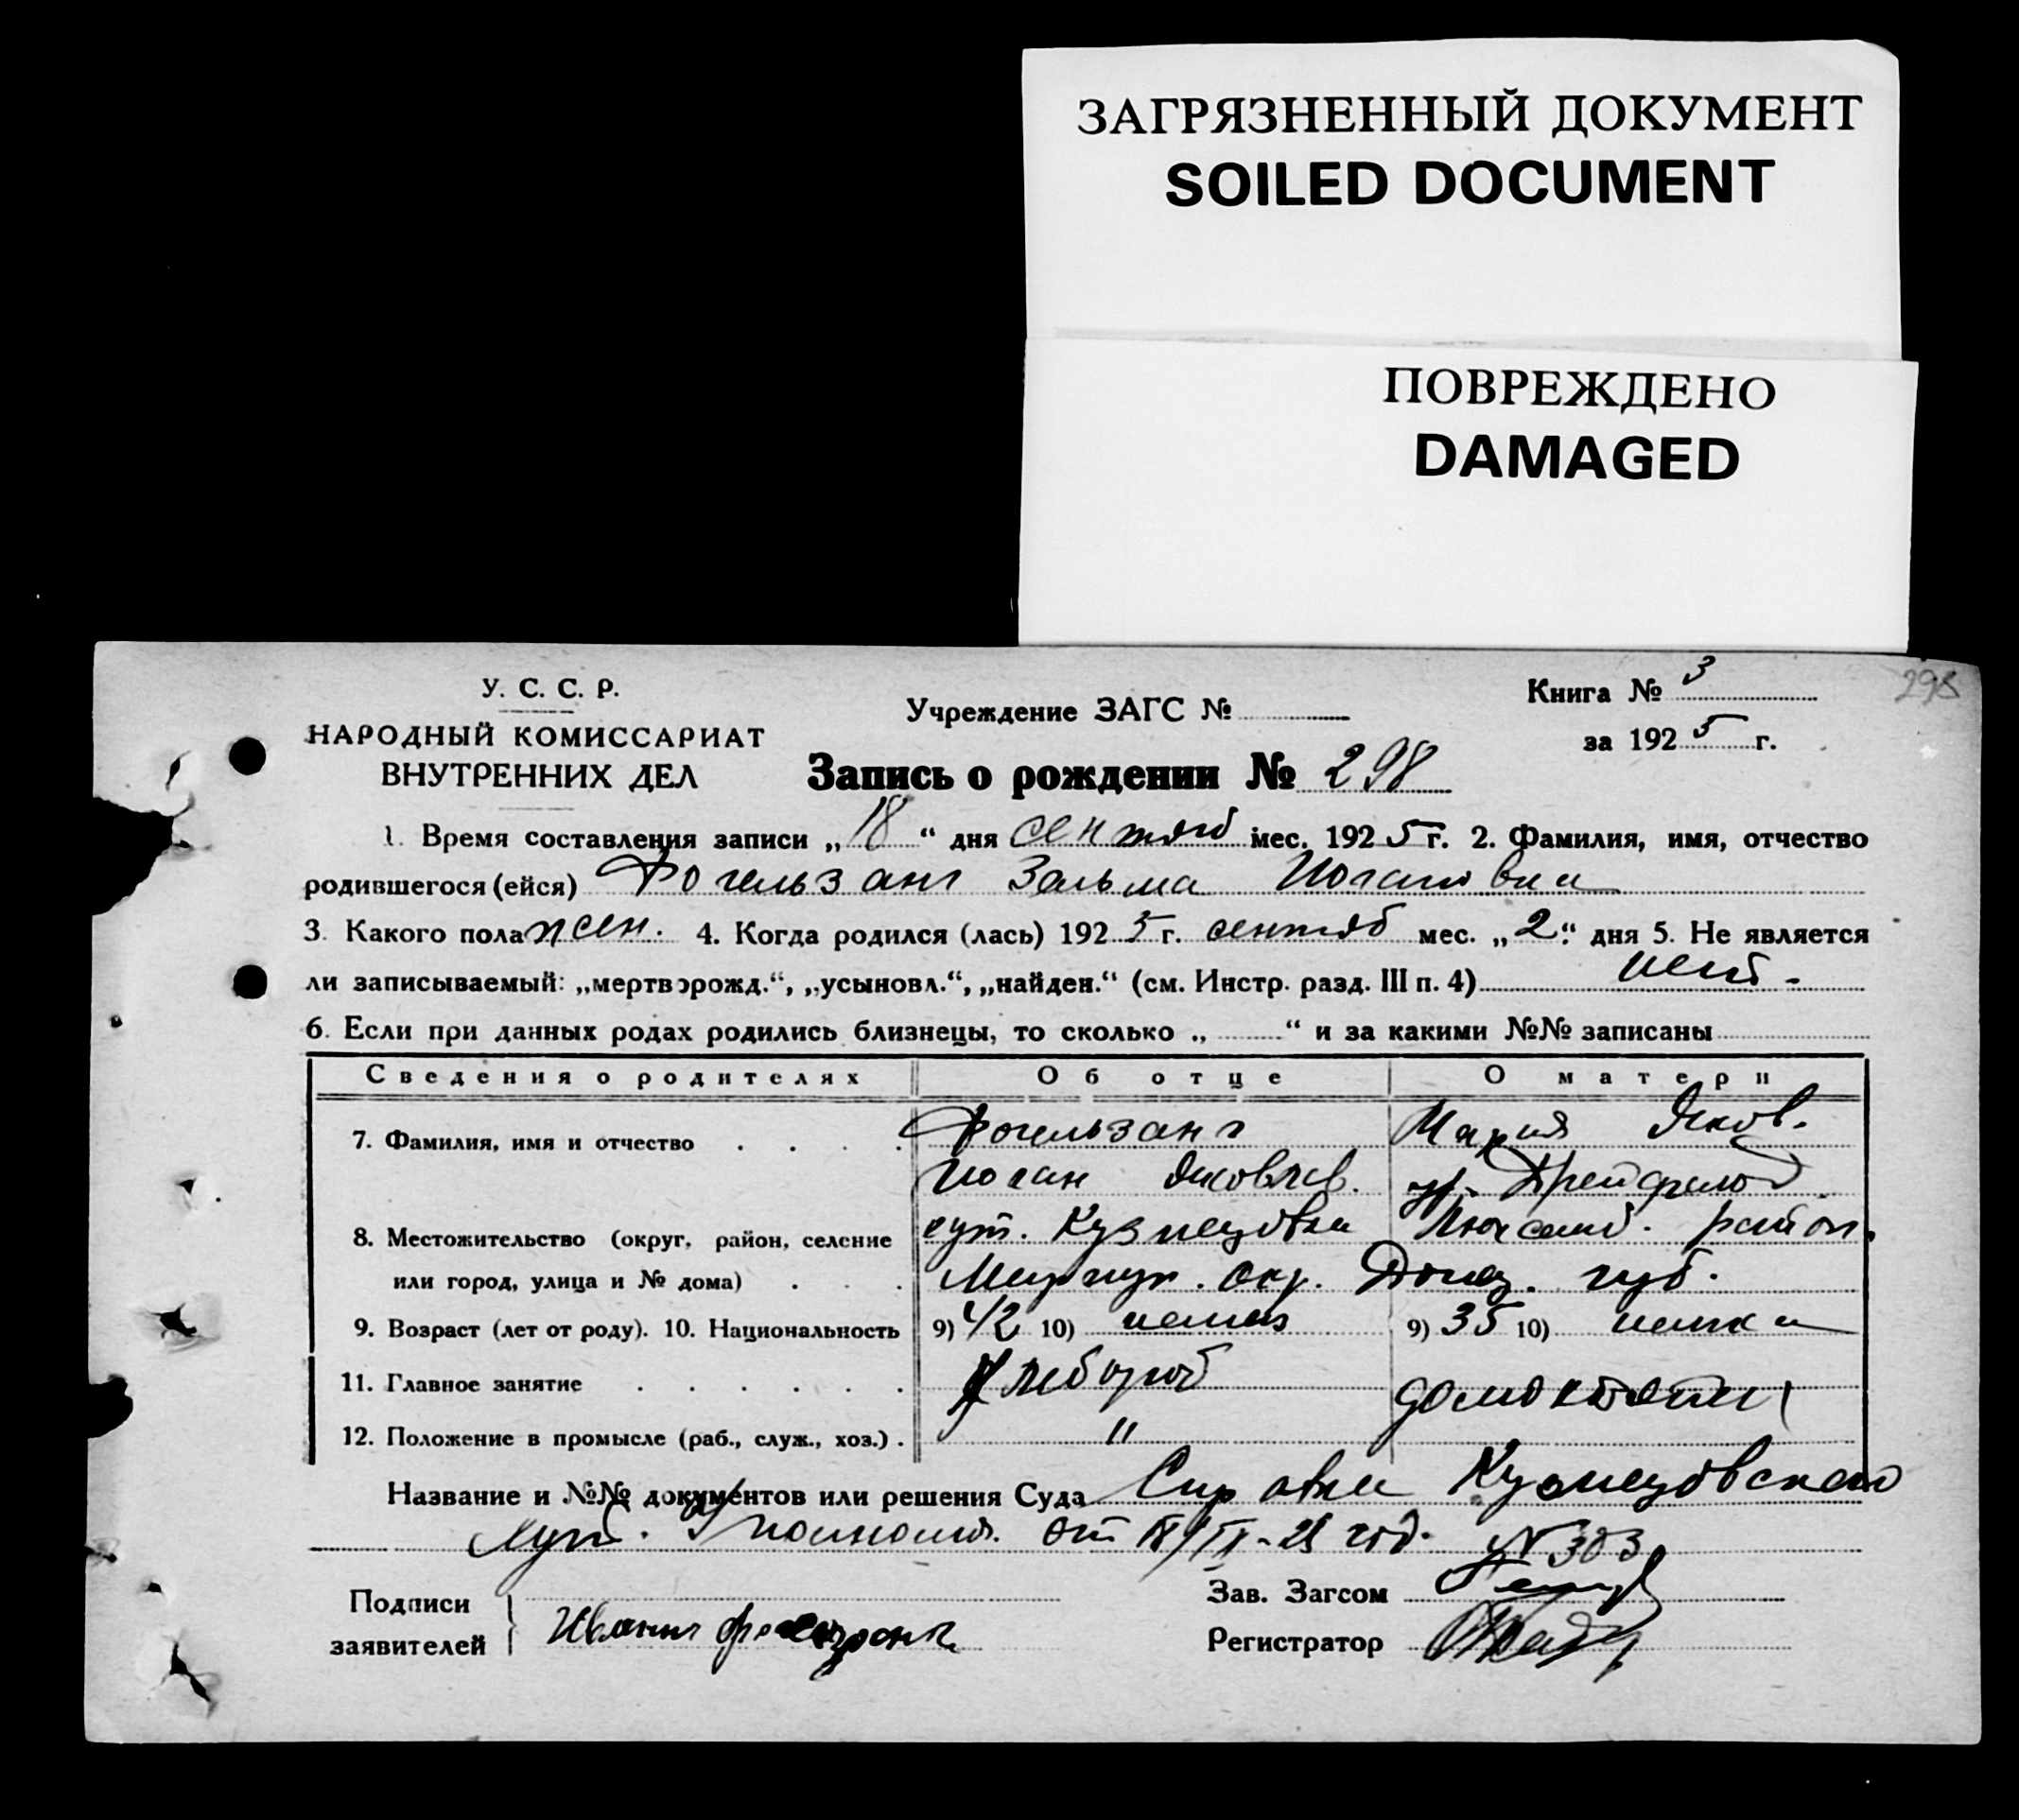 ЗАГРЯЗНЕННЫЙ ДОКУМЕНТ
SOILED DOCUMENT
ПОВРЕЖДЕНО
DAMAGED
У. С. С. Р.
НАРОДНЫЙ КОМИССАРИАТ
ВНУТРЕННИХ ДЕЛ
Учреждение ЗАГС №
Книга № 3
298
за 1925 г.
Запись о рождении № 298
1. Время составления записи „18“ дня сентяб мес. 1925 г. 2. Фамилия, имя, отчество
родившегося (ейся) Фогельзанг Зальма Иогановна
3. Какого пола жен. 4. Когда родился (лась) 1925 г. сентяб мес. „2“ дня 5. Не является
ли записываемый: „мертворожд.“, „усыновл.“, „найден.“ (см. Инстр. разд. III п. 4) нет -
6. Если при данных родах родились близнецы, то сколько „ “ и за какими №№ записаны
Сведения о родителях Об отце О матери
7. Фамилия, имя и отчество Фогельзанг Мария Яков.
Иоган Яковлев. ур.
8. Местожительство (округ, район, селение хут. Кузнецовка район.
или город, улица и № дома) окр. Донец. губ.
9. Возраст (лет от роду). 10. Национальность 9) 42 10) немец 9) 35 10) немка
11. Главное занятие Хлебороб
12. Положение в промысле (раб., служ., хоз.) . "
Название и №№ документов или решения Суда Справка Кузнецовского
Хут. от год. № 303
Подписи
заявителей
Зав. Загсом
Регистратор